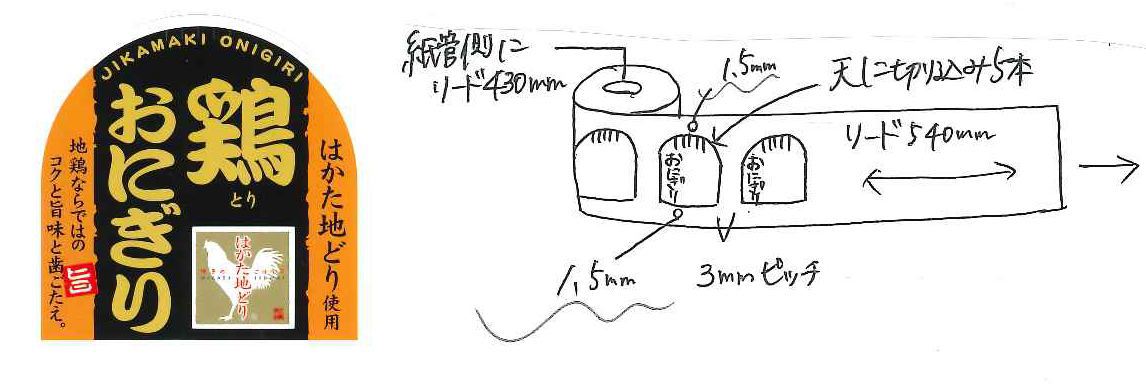 JIKAMAKI ONIGIRI
鶏
とり
おにぎり
はかた地どり使用
地鶏ならではの
コクと旨味と歯ごたえ。
旨
はかた地どり
紙管側に
リード430mm
1.5mm
天に切り込み5本
リード540mm
おにぎり
おにぎり
1.5mm
3mmピッチ